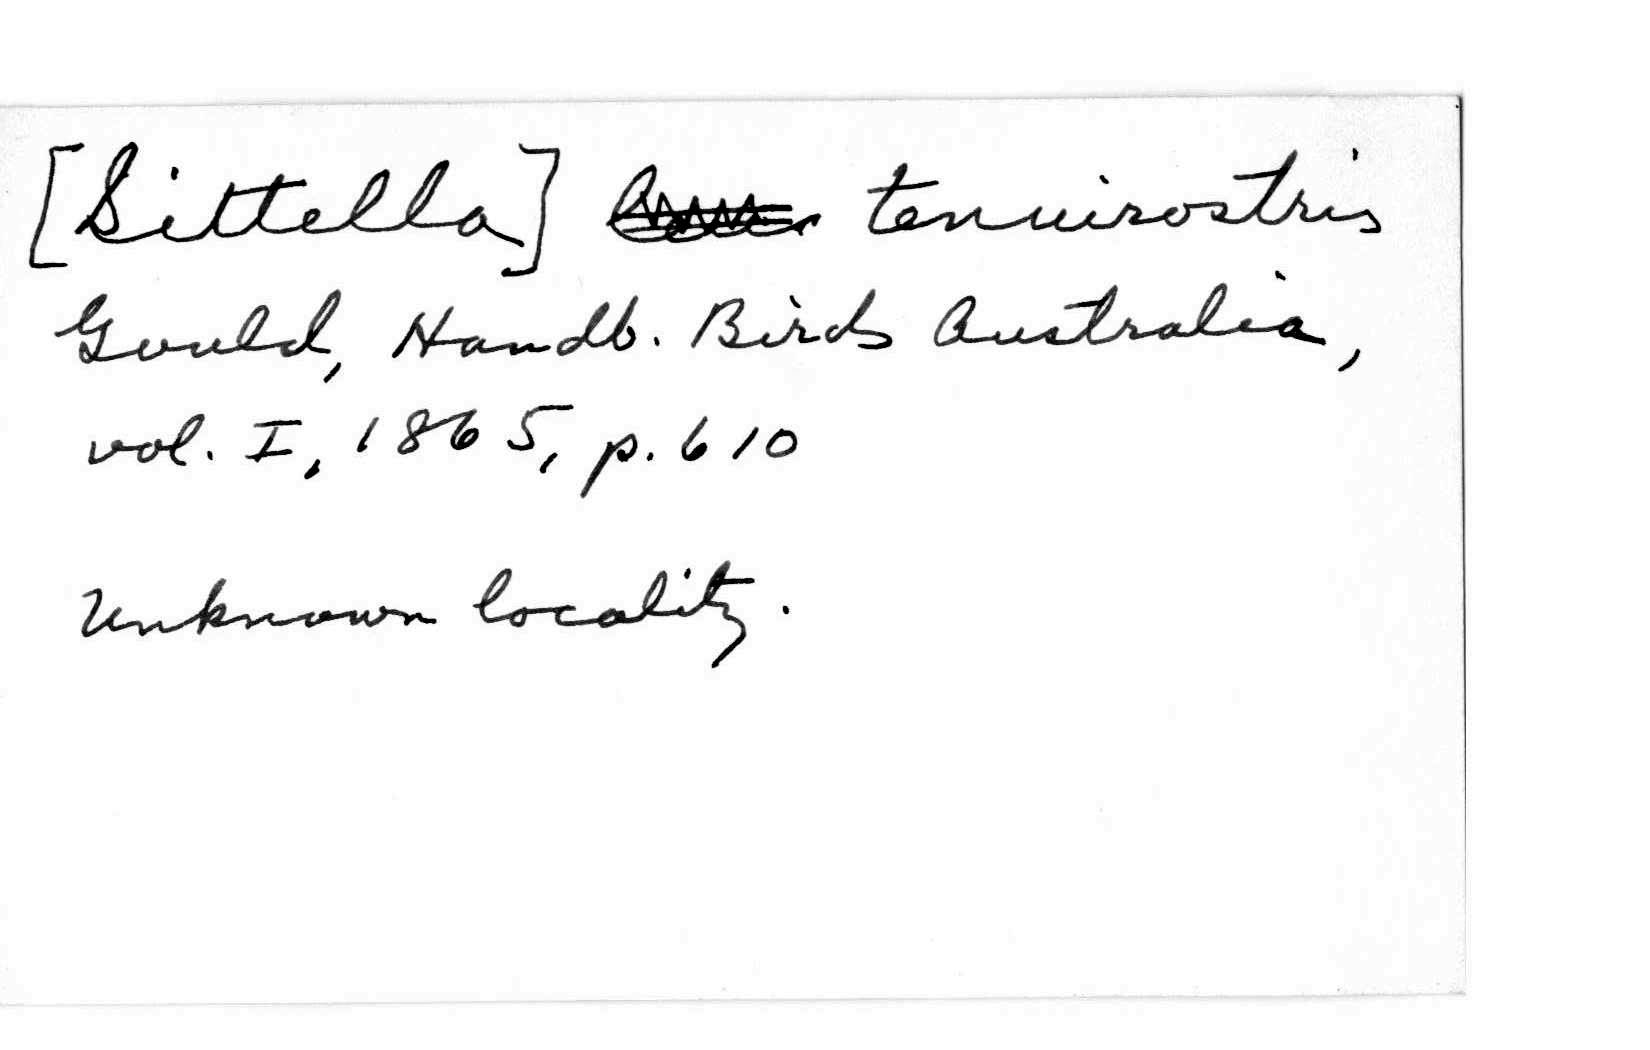 [Sittella] tenuirostris
Gould, Handb. Birds Australia,
vol. I, 1865, p. 610
Unknown locality.